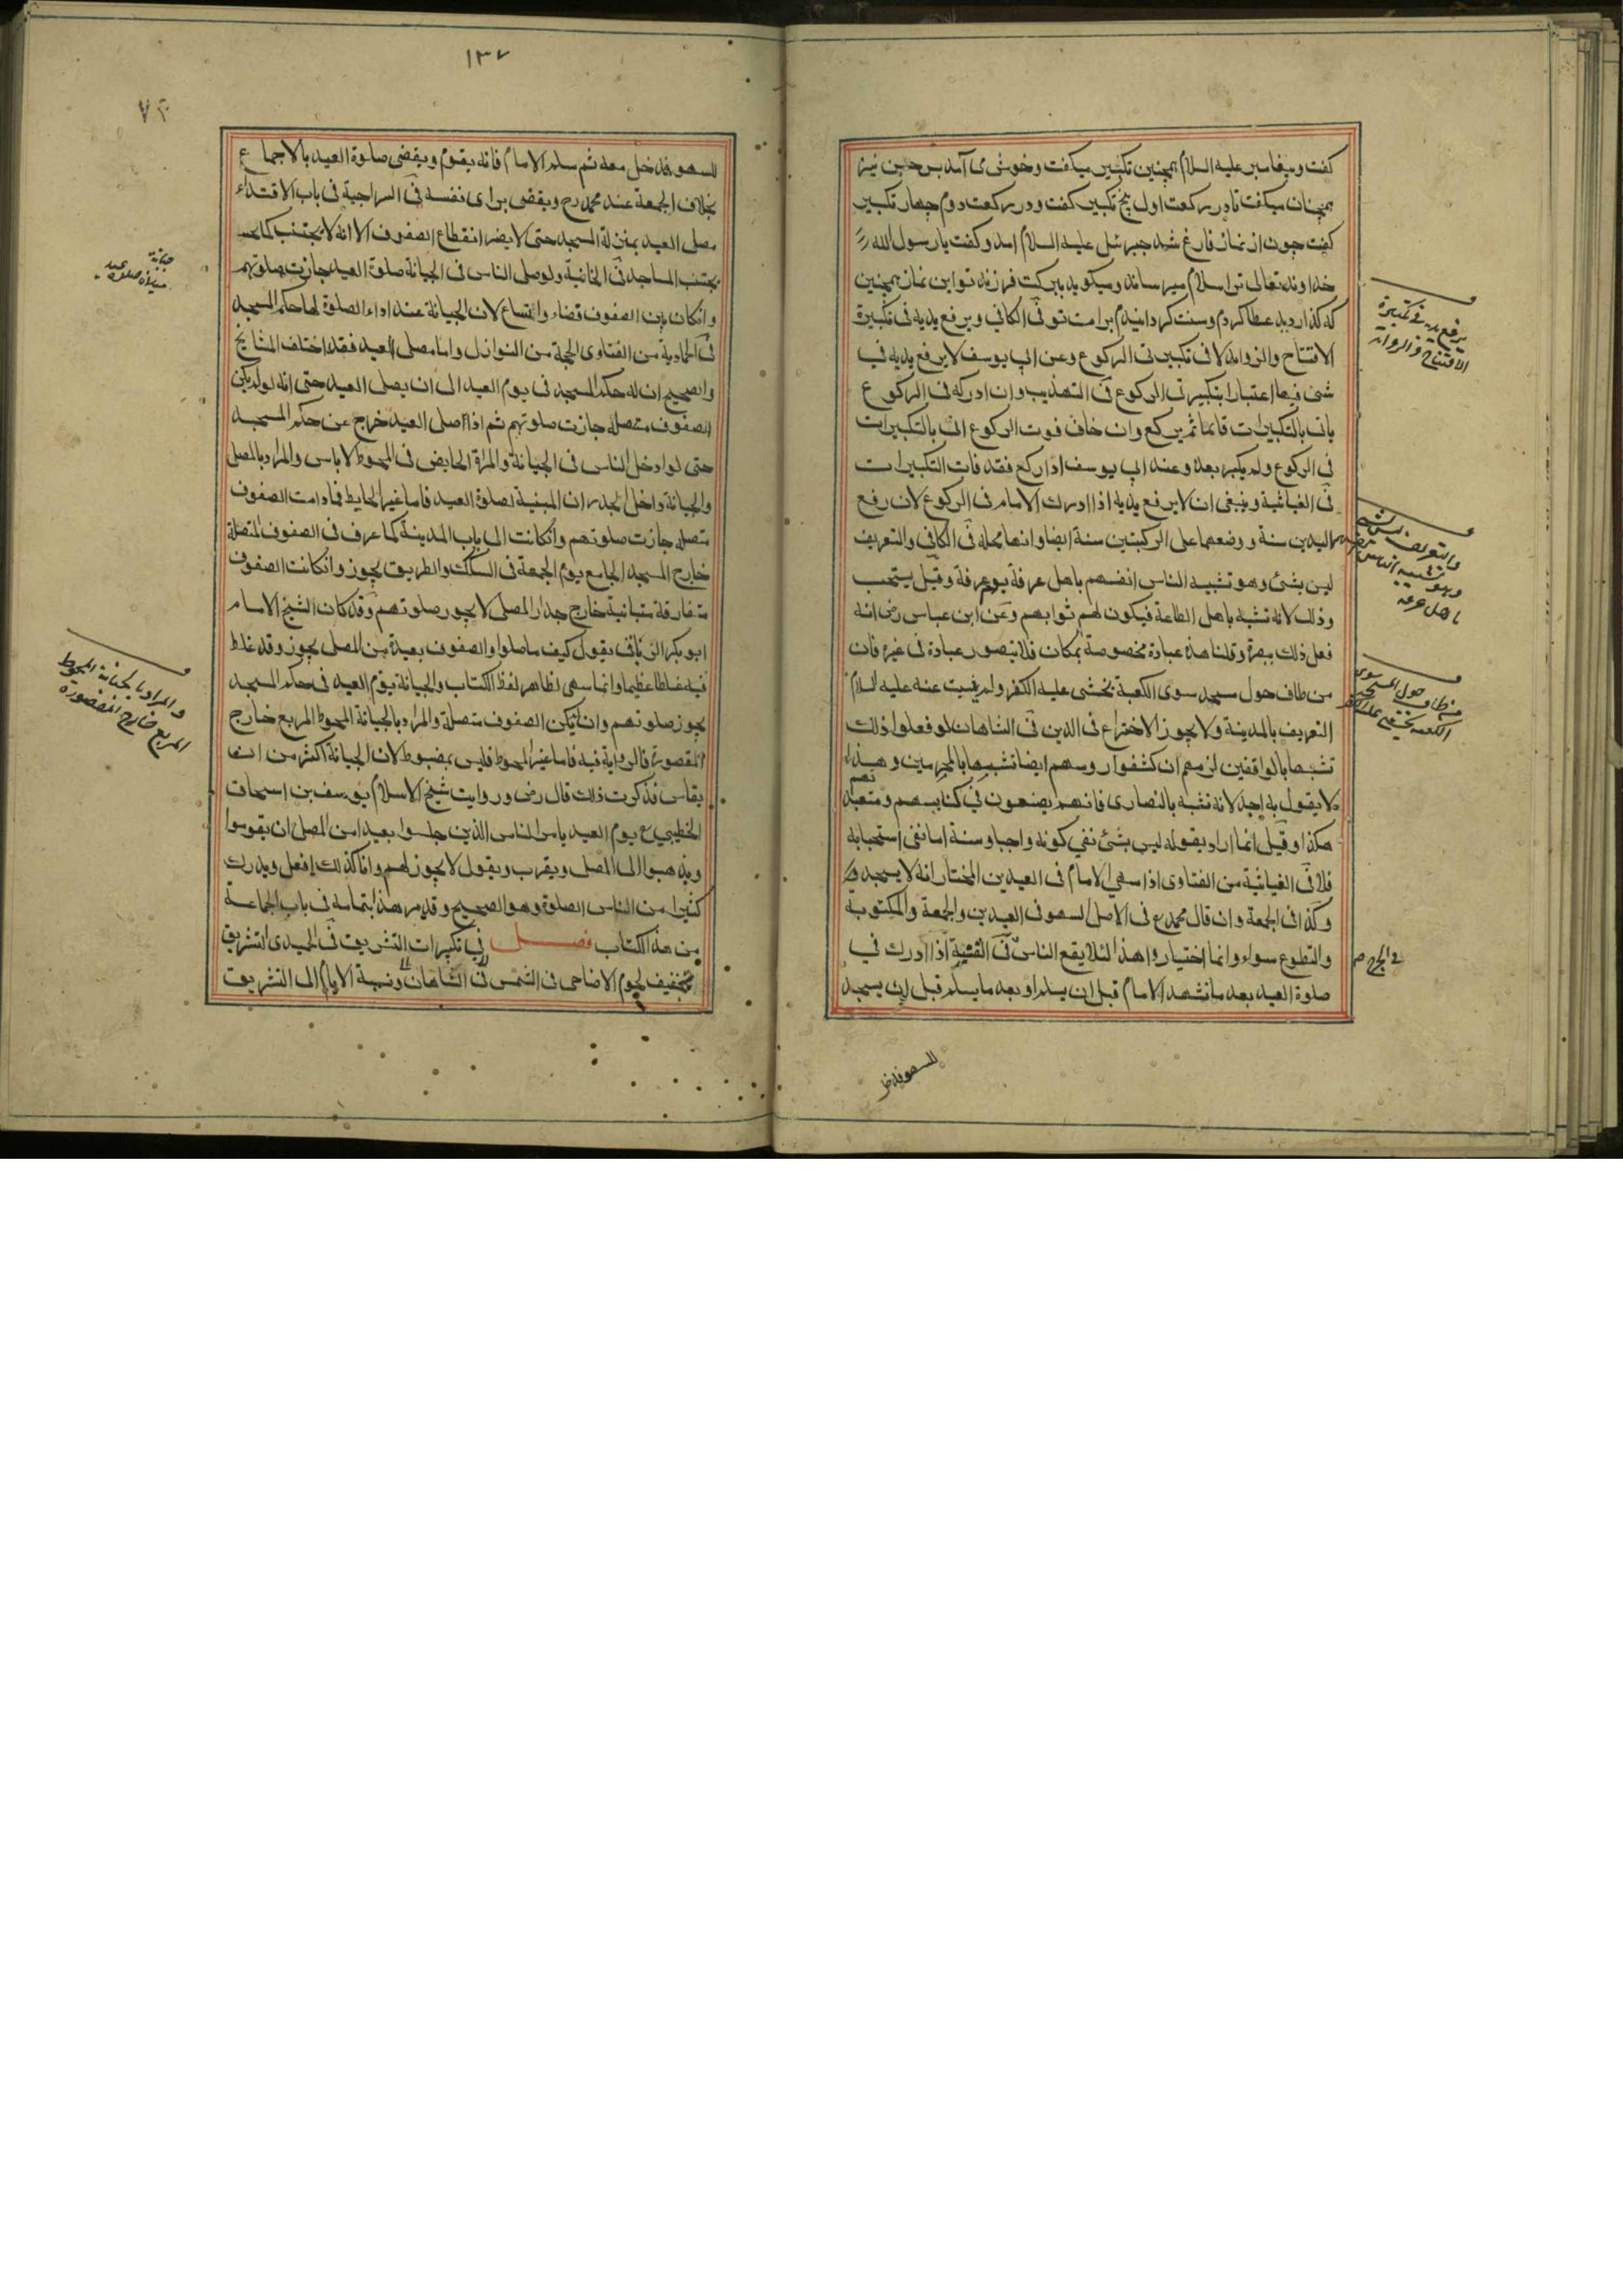 كفت وپيغامبر عليه السلام همچنين تكبير ميكفت وخوش مى آمد پس حسين نيز
همچنان ميكفت تا در ركعت اول پنج تكبير كفت ودر ركعت دوم چهار تكبير
كفت چون از نماز فارغ شد جبرئيل عليه السلام امد وكفت يا رسول الله
خداوند تعالى ترا سلام ميرساند وميكويد ببركت فرزند تو اين نماز همچنين
كه كذارديد عطا كردم وسنت كردانيدم برامت تو فى الكافي ويرفع يديه فى تكبيرة
الافتتاح والزوايد لا فى تكبيرتى الركوع وعن ابي يوسف لا يرفع يديه في
شئ فيها اعتبارا بتكبيرتى الركوع فى التهذيب وان ادركه فى الركوع
ياتى بالتكبيرات قايما ثم يركع وان خاف فوت الركوع اتى بالتكبيرات
في الركوع ولم يكبر بعد وعند ابي يوسف اذا ركع فقد فات التكبيرات
فى الغياثية وينبغى ان لا يرفع يديه اذا ادرك الامام فى الركوع لان رفع
اليدين سنة ووضعهما على الركبتين سنة ايضا وانها محله فى الكافي والتعريف
ليس بشئ وهو تشبيه الناس انفسهم باهل عرفة يوم عرفة وقيل يستحب
وذلك لانه تشبه باهل الطاعة فيكون لهم ثوابهم وعن ابن عباس رض انه
فعل ذلك ببصرة وقلنا هذه عبادة مخصوصة بمكان فلا يتصور عبادة فى غيره فان
من طاف حول مسجد سوى الكعبة يخشى عليه الكفر ولم يثبت عنه عليه السلام
التعريف بالمدينة ولا يجوز الاختراع فى الدين فى الشاهان لو فعلوا ذلك
تشبها بالواقفين لزمهم ان كشفوا روسهم ايضا تشبيها بالمحرمين وهذا
لا يقول به احد لانه تشبه بالنصارى فانهم يصنعون في كنايسهم ومتعبدهم
هكذا وقيل انما اراد بقوله ليس بشئ نفي كونه واجبا وسنة اما نفى استحبابه
فلا فى الغياثية من الفتاوى اذا سهي الامام فى العيدين المختار انه لا يسجد
وكذا فى الجمعة وان قال محمد رح فى الاصل السهو فى العيدين والجمعة والمكتوبة
والتطوع سواء وانما اختياروا هذا لئلا يقع الناس فى الفتنة اذا ادرك في
صلوة العيد بعد ما تشهد الامام قبل ان يسلم او بعد ما يسلم قبل ان يسجد
يرفع يديه فى تكبيرة
الافتتاح والزوايد
والتعريف ليس بشئ
وهو تشبيه الناس
باهل عرفه
من طاف حول مسجد سوى
الكعبه يخشى عليه الكفر
للسهو فدخل
١٣٧
٧٣
للسهو فدخل معه ثم سلم الامام فانه يقوم ويقضى صلوة العيد بالاجماع
بخلاف الجمعة عند محمد رح ويقضى براى نفسه فى السراجية فى باب الاقتداء
مصلى العيد بمنزلة المسجد حتى لا يضر انقطاع الصفوف الا انه لا يجتنب كما
يجتنب المساجد فى الخانية ولو صلى الناس فى الجبانة صلوة العيد جازت صلوتهم
وان كان بين الصفوف فضاء واتساع لان الجبانة عند اداء الصلوة لها حكم المسجد
فى الحمادية من الفتاوى الحجة من النوازل واما مصلى العيد فقد اختلف المشايخ
والصحيح ان له حكم المسجد فى يوم العيد الى ان يصلى العيد حتى انه لو لم يكن
الصفوف متصلة جازت صلوتهم ثم اذا صلى العيد خرج عن حكم المسجد
حتى لو ادخل الناس فى الجبانة والمراة الحايض فى المحوط لا باس والمراد بالمصلى
والجبانة داخل الجدران المبنية لصلوة العيد فاما غير الحايط فما دامت الصفوف
متصلة جازت صلوتهم وان كانت الى باب المدينة كما عرف فى الصفوف المتصلة
خارج المسجد الجامع يوم الجمعة فى السكك والطريق يجوز وان كانت الصفوف
متفارقة متباينة خارج جدار المصلى لا يجوز صلوتهم وقد كان الشيخ الامام
ابو بكر يقول كيف ما صلوا والصفوف بعيدة من المصلى يجوز وقد غلط
فيه غلطا عظيما وانما سهى لظاهر لفظ الكتاب والجبانة يوم العيد فى حكم المسجد
يجوز صلوتهم وان لم يكن الصفوف متصلة والمراد بالجبانة المحوط المربع خارج
المقصورة فالرواية فيه فاما غير المحوط فليس بمضبوط لان الجبانة اكثر من ان
يقاس فذكرت ذلك قال رض وروايت شيخ الاسلام يوسف بن اسحاق
الخطيبي رح يوم العيد يامر الناس الذين جلسوا بعيدا من المصلى ان يقوموا
ويذهبوا الى المصلى ويقرب ويقول لا يجوز لهم وانا كذلك افعل ويدرك
كثيرا من الناس الصلوة وهو الصحيح وقد مر هذا بتمامه فى باب الجماعة
من هذا الكتاب فصل في تكبيرات التشريق فى التشريق
تخفيف لحوم الاضاحى فى الشمس فى الشاهان ونسبة الايام الى التشريق
جبانة
ميدان صلوة عيد
والمراد بالجبانة المحوط
المربع خارج المقصورة